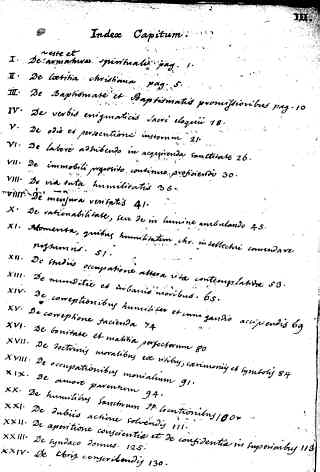 III.
Index Capitum:
veste et
I. De armatura spirituali pag. 1.
II. De lætitia christiana pag. 5.
III. De Baptismate et Baptismatis promissionibus pag. 10
IV. De verbis enigmaticis sacri eloquii 18.
V. De odio et persecutione justorum 21.
VI. De labore adhibendo in acquirenda sanctitate 26.
VII. De immobili proposito continuo proficiendi 30.
VIII. De via tuta humilitatis 36.
VIIII. De mensura veritatis 41.
X. De rationabilitate, seu de in lumine ambulando 45.
XI. Momenta, quibus humilitatem chr. intellectui comendare
51.
XII. De studiis occupatione altera vitæ contemplativæ 58.
XIII. De munditie et urbanis moribus. 65.
XIV. De correptionibus humiliter et cum gaudio accipiendis 69
XV. De correptione facienda 74
XVI. De bonitate et malitia præfectorum 80
XVII. De doctrinis moralibus ex ritibus, cærimoniis et symbolis 84
XVIII. De occupationibus monialium 91.
XIX. De amore parentum 94.
XX. De humilibus Sanctorum PP. locutionibus 104
XXI. De dubiis actione solvendis 111.
XXII. De apertione conscientiæ et de confidentia in superioribus 118
XXIII. De syndaco domus 125.
XXIV. De libris conscribendis 130.